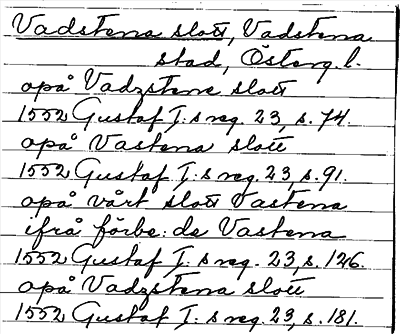 Vadstena slott, Vadstena
stad, Österg. l.
opå Vadzstena slott
1552 Gustaf I:s reg. 23, s. 74.
opå Vastena slott
1552 Gustaf I:s reg. 23, s. 91.
opå vårt slott Vastena
ifrå förbe:de Vastena
1552 Gustaf I:s reg. 23, s. 126.
opå Vadzstena slott
1552 Gustaf I:s reg. 23, s. 181.